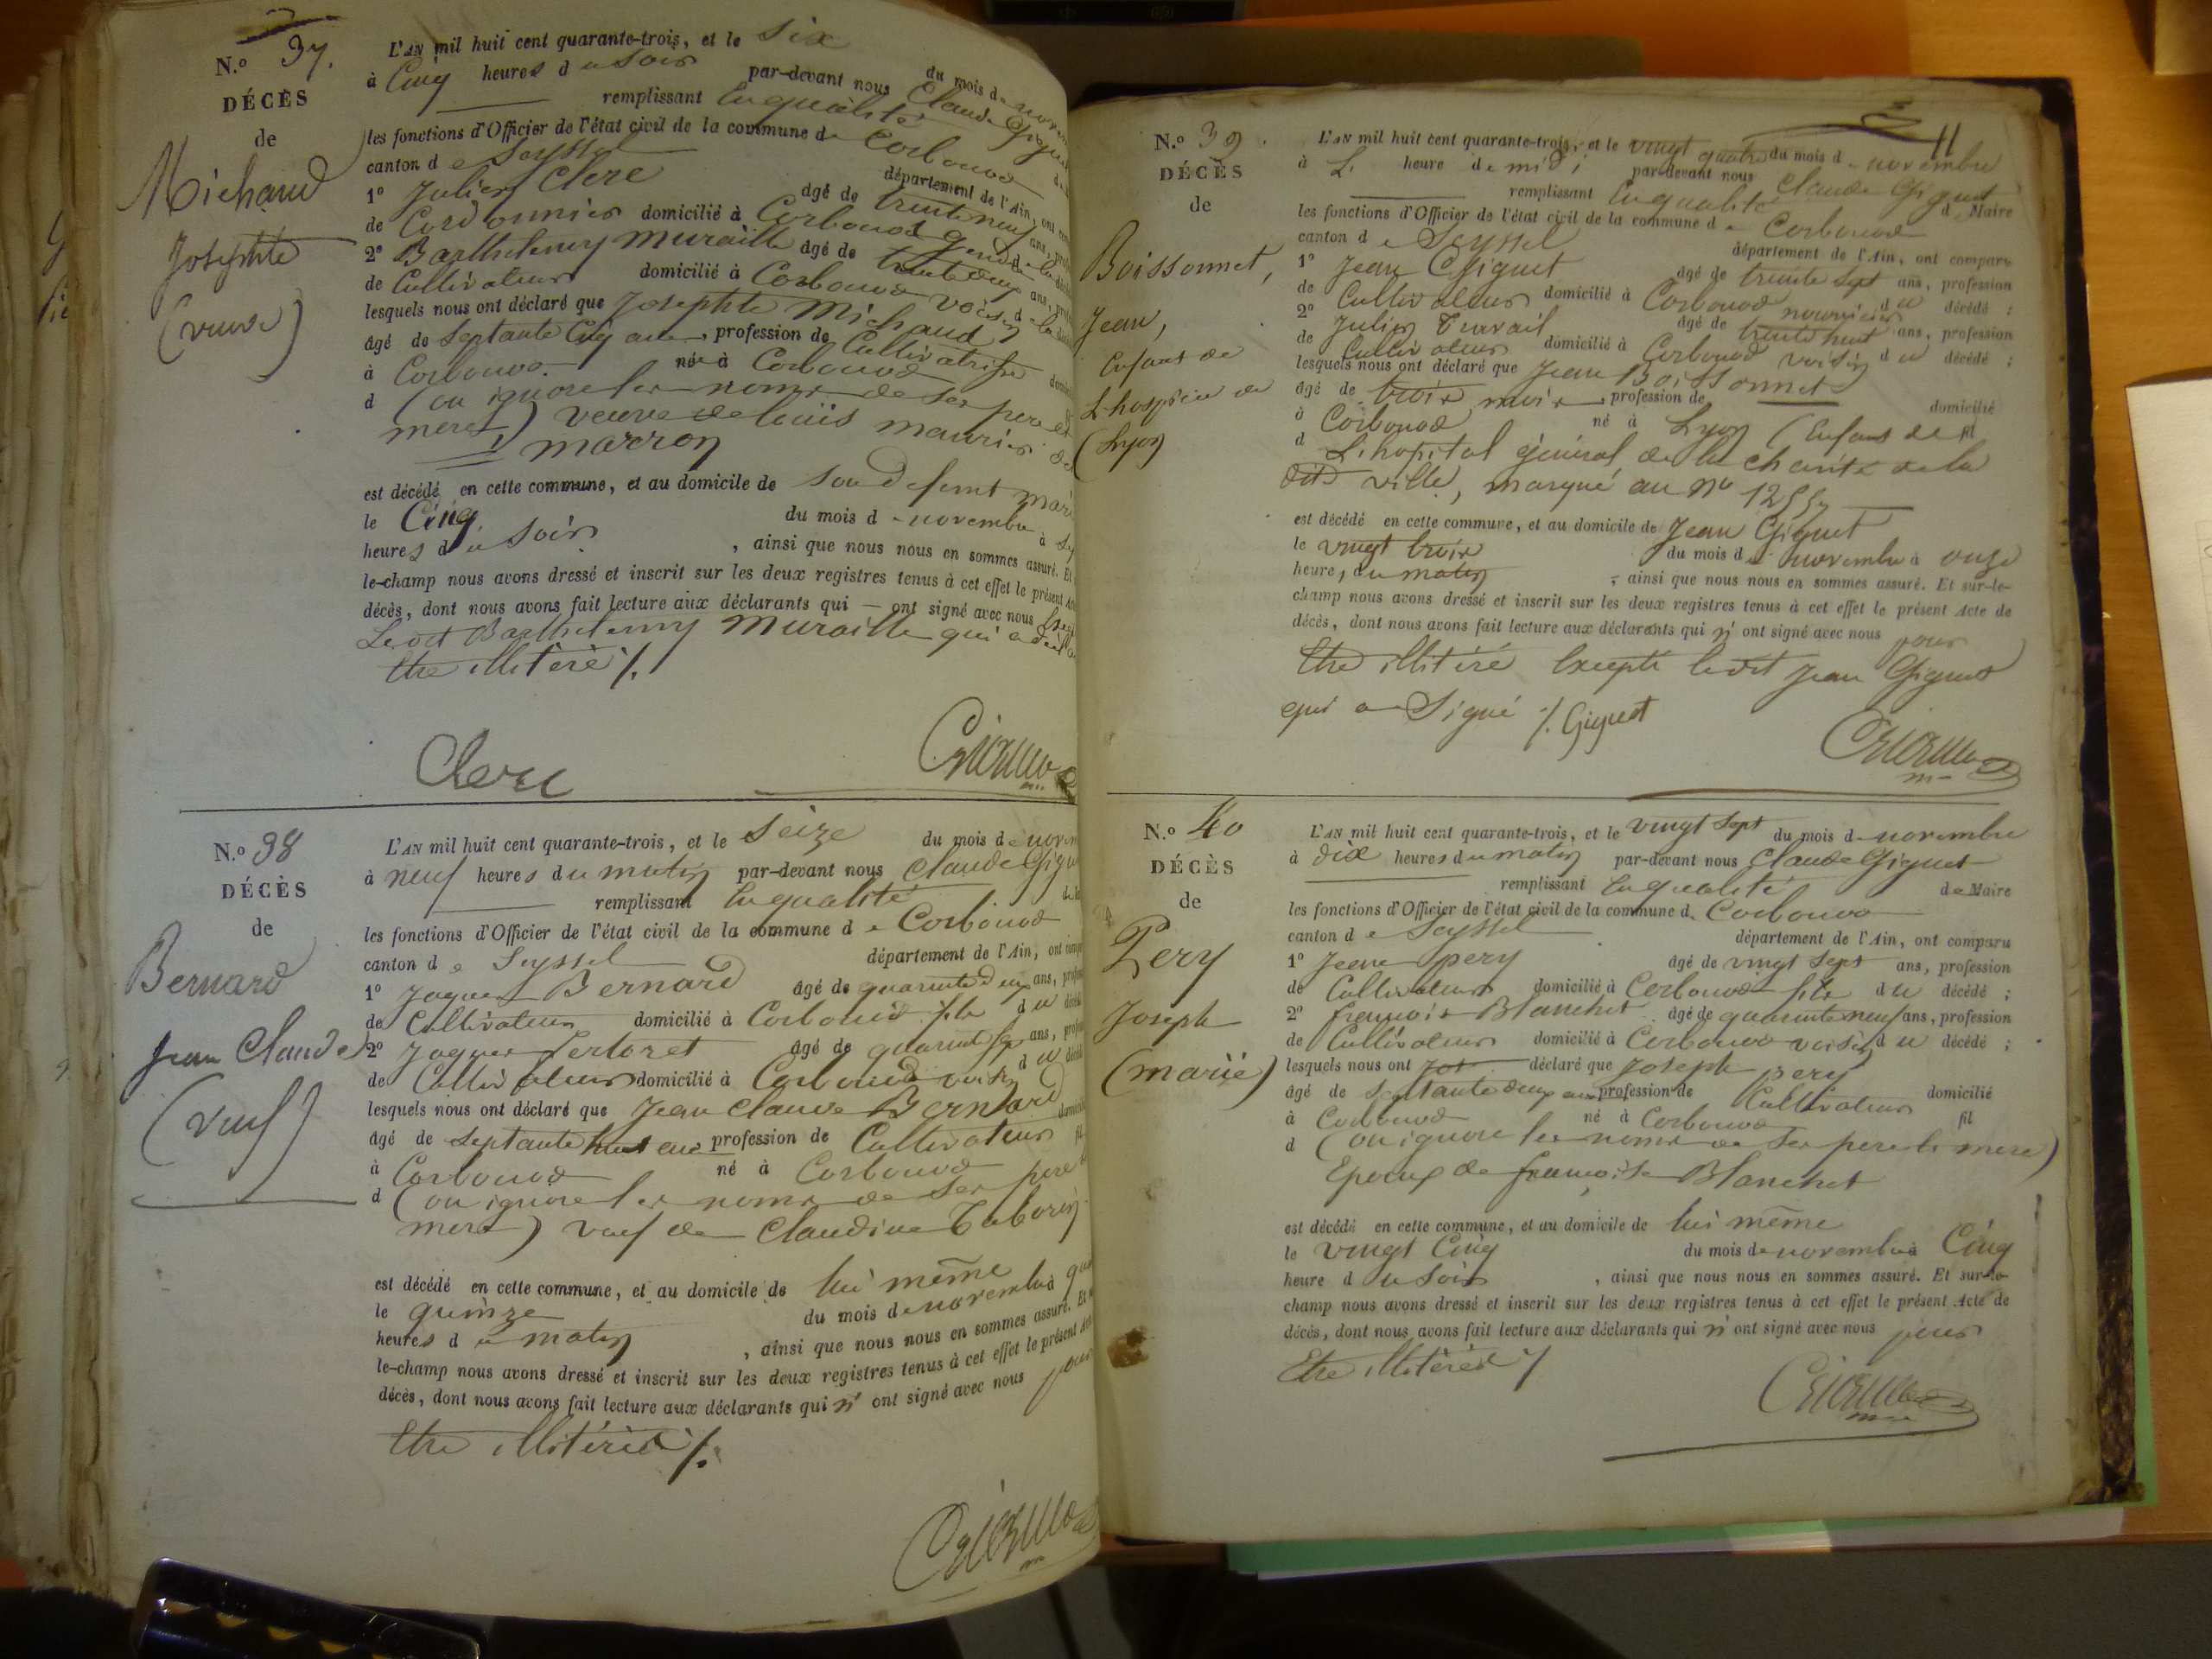 N.º 37.
DÉCÈS
de
Michaud
Josephte
(veuve)
L'AN mil huit cent quarante-trois, et le six du mois de
à Cinq heures du soir par-devant nous Claude
remplissant en qualité
les fonctions d'Officier de l'état civil de la commune de Corbonod
canton de Seyssel département de l'Ain, ont
1º Julien Clerc âgé de trente neuf ans,
de Cordonnier domicilié à Corbonod gendre de la
2º Barthelemy Muraille âgé de trente deux ans,
de Cultivateur domicilié à Corbonod voisin de la
lesquels nous ont déclaré que Josephte Michaud
âgé de septante Cinq ans, profession de Cultivatrise
à Corbonod née à Corbonod
d (on ignore les noms de ses pere et
mere) veuve de Louis Maurier
Marron
est décédé en cette commune, et au domicile de son defunt mari
le Cinq du mois de novembre à
heures du soir, ainsi que nous nous en sommes assuré. Et
le-champ nous avons dressé et inscrit sur les deux registres tenus à cet effet le présent
décès, dont nous avons fait lecture aux déclarants qui — ont signé avec nous
Ledit Barthelemy Muraille qui a
Etre illitéré /.
Clerc
N.º 38
DÉCÈS
de
Bernard
Jean Claude
(veuf)
L'AN mil huit cent quarante-trois, et le seize du mois de
à neuf heures du matin par-devant nous Claude
remplissant en qualité
les fonctions d'Officier de l'état civil de la commune de Corbonod
canton de Seyssel département de l'Ain, ont
1º Jaques Bernard âgé de quarante deux ans,
de Cultivateur domicilié à Corbonod fils du
2º Jaques âgé de ans,
de Cultivateur domicilié à Corbonod voisin du
lesquels nous ont déclaré que Jean Claude Bernard
âgé de septante huit ans profession de Cultivateur
à Corbonod né à Corbonod
d (on ignore les noms de ses pere
mere) veuf de Claudine Taborin
est décédé en cette commune, et au domicile de lui même
le quinze du mois de novembre à
heures du matin, ainsi que nous nous en sommes assuré. Et
le-champ nous avons dressé et inscrit sur les deux registres tenus à cet effet le présent
décès, dont nous avons fait lecture aux déclarants qui n' ont signé avec nous pour
Etre illitérés /.
11
N.º 39.
DÉCÈS
de
Boissonnet,
Jean,
Enfant de
L'hospice de
(Lyon)
L'AN mil huit cent quarante-trois, et le vingt quatre du mois de novembre
à L' heure de midi par-devant nous Claude Giguet
remplissant en qualité d Maire
les fonctions d'Officier de l'état civil de la commune de Corbonod
canton de Seyssel département de l'Ain, ont comparu
1º Jean Giguet âgé de trente sept ans, profession
de Cultivateur domicilié à Corbonod nourricier du décédé ;
2º Julien Travail âgé de trente huit ans, profession
de Cultivateur domicilié à Corbonod voisin du décédé ;
lesquels nous ont déclaré que Jean Boissonnet
âgé de trois mois, profession de domicilié
à Corbonod né à Lyon (Enfant de fil
d L'hopital général de la charité de la
dite ville, marqué au No
est décédé en cette commune, et au domicile de Jean Giguet
le vingt trois du mois de novembre à onze
heures du matin, ainsi que nous nous en sommes assuré. Et sur-le-
champ nous avons dressé et inscrit sur les deux registres tenus à cet effet le présent Acte de
décès, dont nous avons fait lecture aux déclarants qui n' ont signé avec nous pour
Etre illitéré Excepté ledit Jean Giguet
qui a Signé /. Giguet
N.º 40
DÉCÈS
de
Pery
Joseph
(marié)
L'AN mil huit cent quarante-trois, et le vingt sept du mois de novembre
à dix heures du matin par-devant nous Claude Giguet
remplissant en qualité de Maire
les fonctions d'Officier de l'état civil de la commune de Corbonod
canton de Seyssel département de l'Ain, ont comparu
1º Jean pery âgé de vingt sept ans, profession
de Cultivateur domicilié à Corbonod fils du décédé ;
2º françois Blanchet âgé de quarante neuf ans, profession
de Cultivateur domicilié à Corbonod voisin du décédé ;
lesquels nous ont déclaré que Joseph pery
âgé de septante deux ans profession de Cultivateur domicilié
à Corbonod né à Corbonod fil
d (on ignore les noms de ses pere et mere)
Epoux de françoise Blanchet
est décédé en cette commune, et au domicile de lui même
le vingt Cinq du mois de novembre à Cinq
heure du soir, ainsi que nous nous en sommes assuré. Et sur-le-
champ nous avons dressé et inscrit sur les deux registres tenus à cet effet le présent Acte de
décès, dont nous avons fait lecture aux déclarants qui n' ont signé avec nous pour
Etre illitérés /